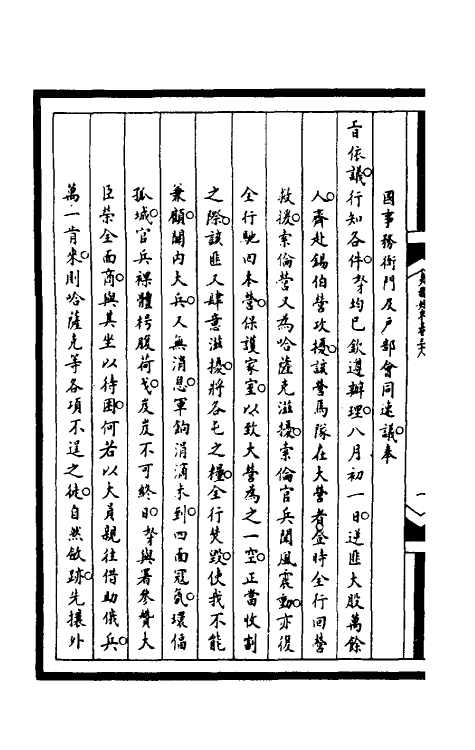 國事務衙門及戶部會同速議奉
旨依議行知各件奴才均已欽遵辦理八月初一日逆匪大股萬餘
人齊赴錫伯營攻擾該營馬隊在大營者登時全行回營
救援索倫營又為哈薩克滋擾索倫官兵聞風震動亦復
全行馳回本營保護家室以致大營為之一空正當收割
之際該匪又肆意滋擾將各屯之糧全行焚毀使我不能
兼顧關內大兵又無消息軍餉涓滴未到四面寇氛環偪
孤城官兵裸體枵腹荷戈岌岌不可終日奴才與署參贊大
臣榮全面商與其坐以待困何若以大員親往借助俄兵
萬一肯來則哈薩克等各項不逞之徒自然斂跡先攘外